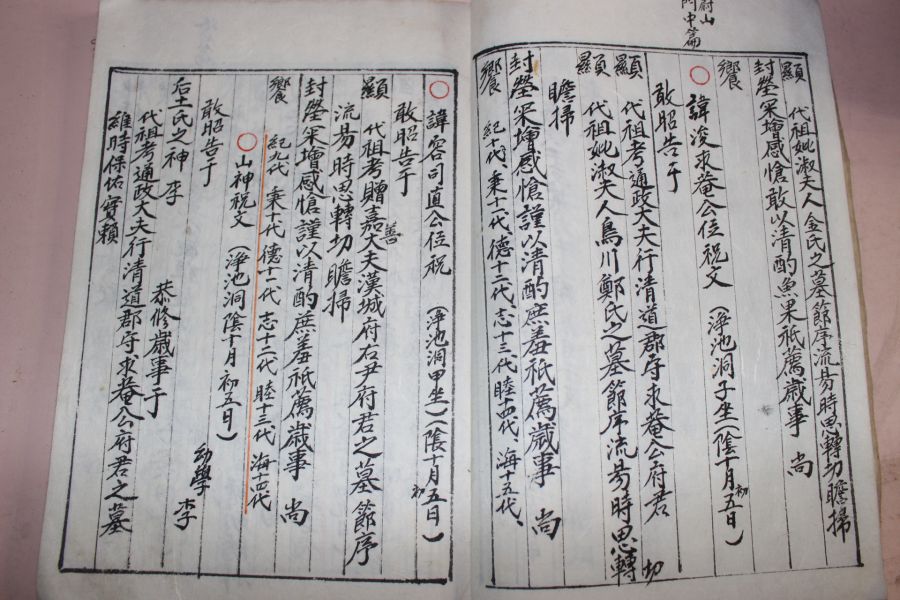 蔚山
門中篇
顯 代祖妣淑夫人金氏之墓節序流易時思轉切瞻掃
封塋采增感愴敢以清酌魚果祇薦歲事 尚
饗
○ 諱浚求菴公位祝文 (淨池洞子坐) (陰十月初五日)
敢昭告于
顯 代祖考通政大夫行清道郡守求菴公府君
顯 代祖妣淑夫人烏川鄭氏之墓節序流易時思轉切
瞻掃
封塋采增感愴謹以清酌庶羞祇薦歲事 尚
饗 紀十代、秉十一代、德十二代、志十三代、睦十四代、海十五代、
○ 諱容司直公位祝 (淨池洞甲坐) (陰十月初五日)
敢昭告于
顯 代祖考贈嘉善大夫漢城府右尹府君之墓節序
流易時思轉切瞻掃
封塋采增感愴謹以清酌庶羞祇薦歲事 尚
饗 紀九代 秉十代 德十一代 志十二代 睦十三代 海十四代
○ 山神祝文 (淨池洞陰十月初五日)
敢昭告于 幼學 李
后土氏之神 李 恭修歲事于
代祖考通政大夫行清道郡守求菴公府君之墓
維時保佑實賴